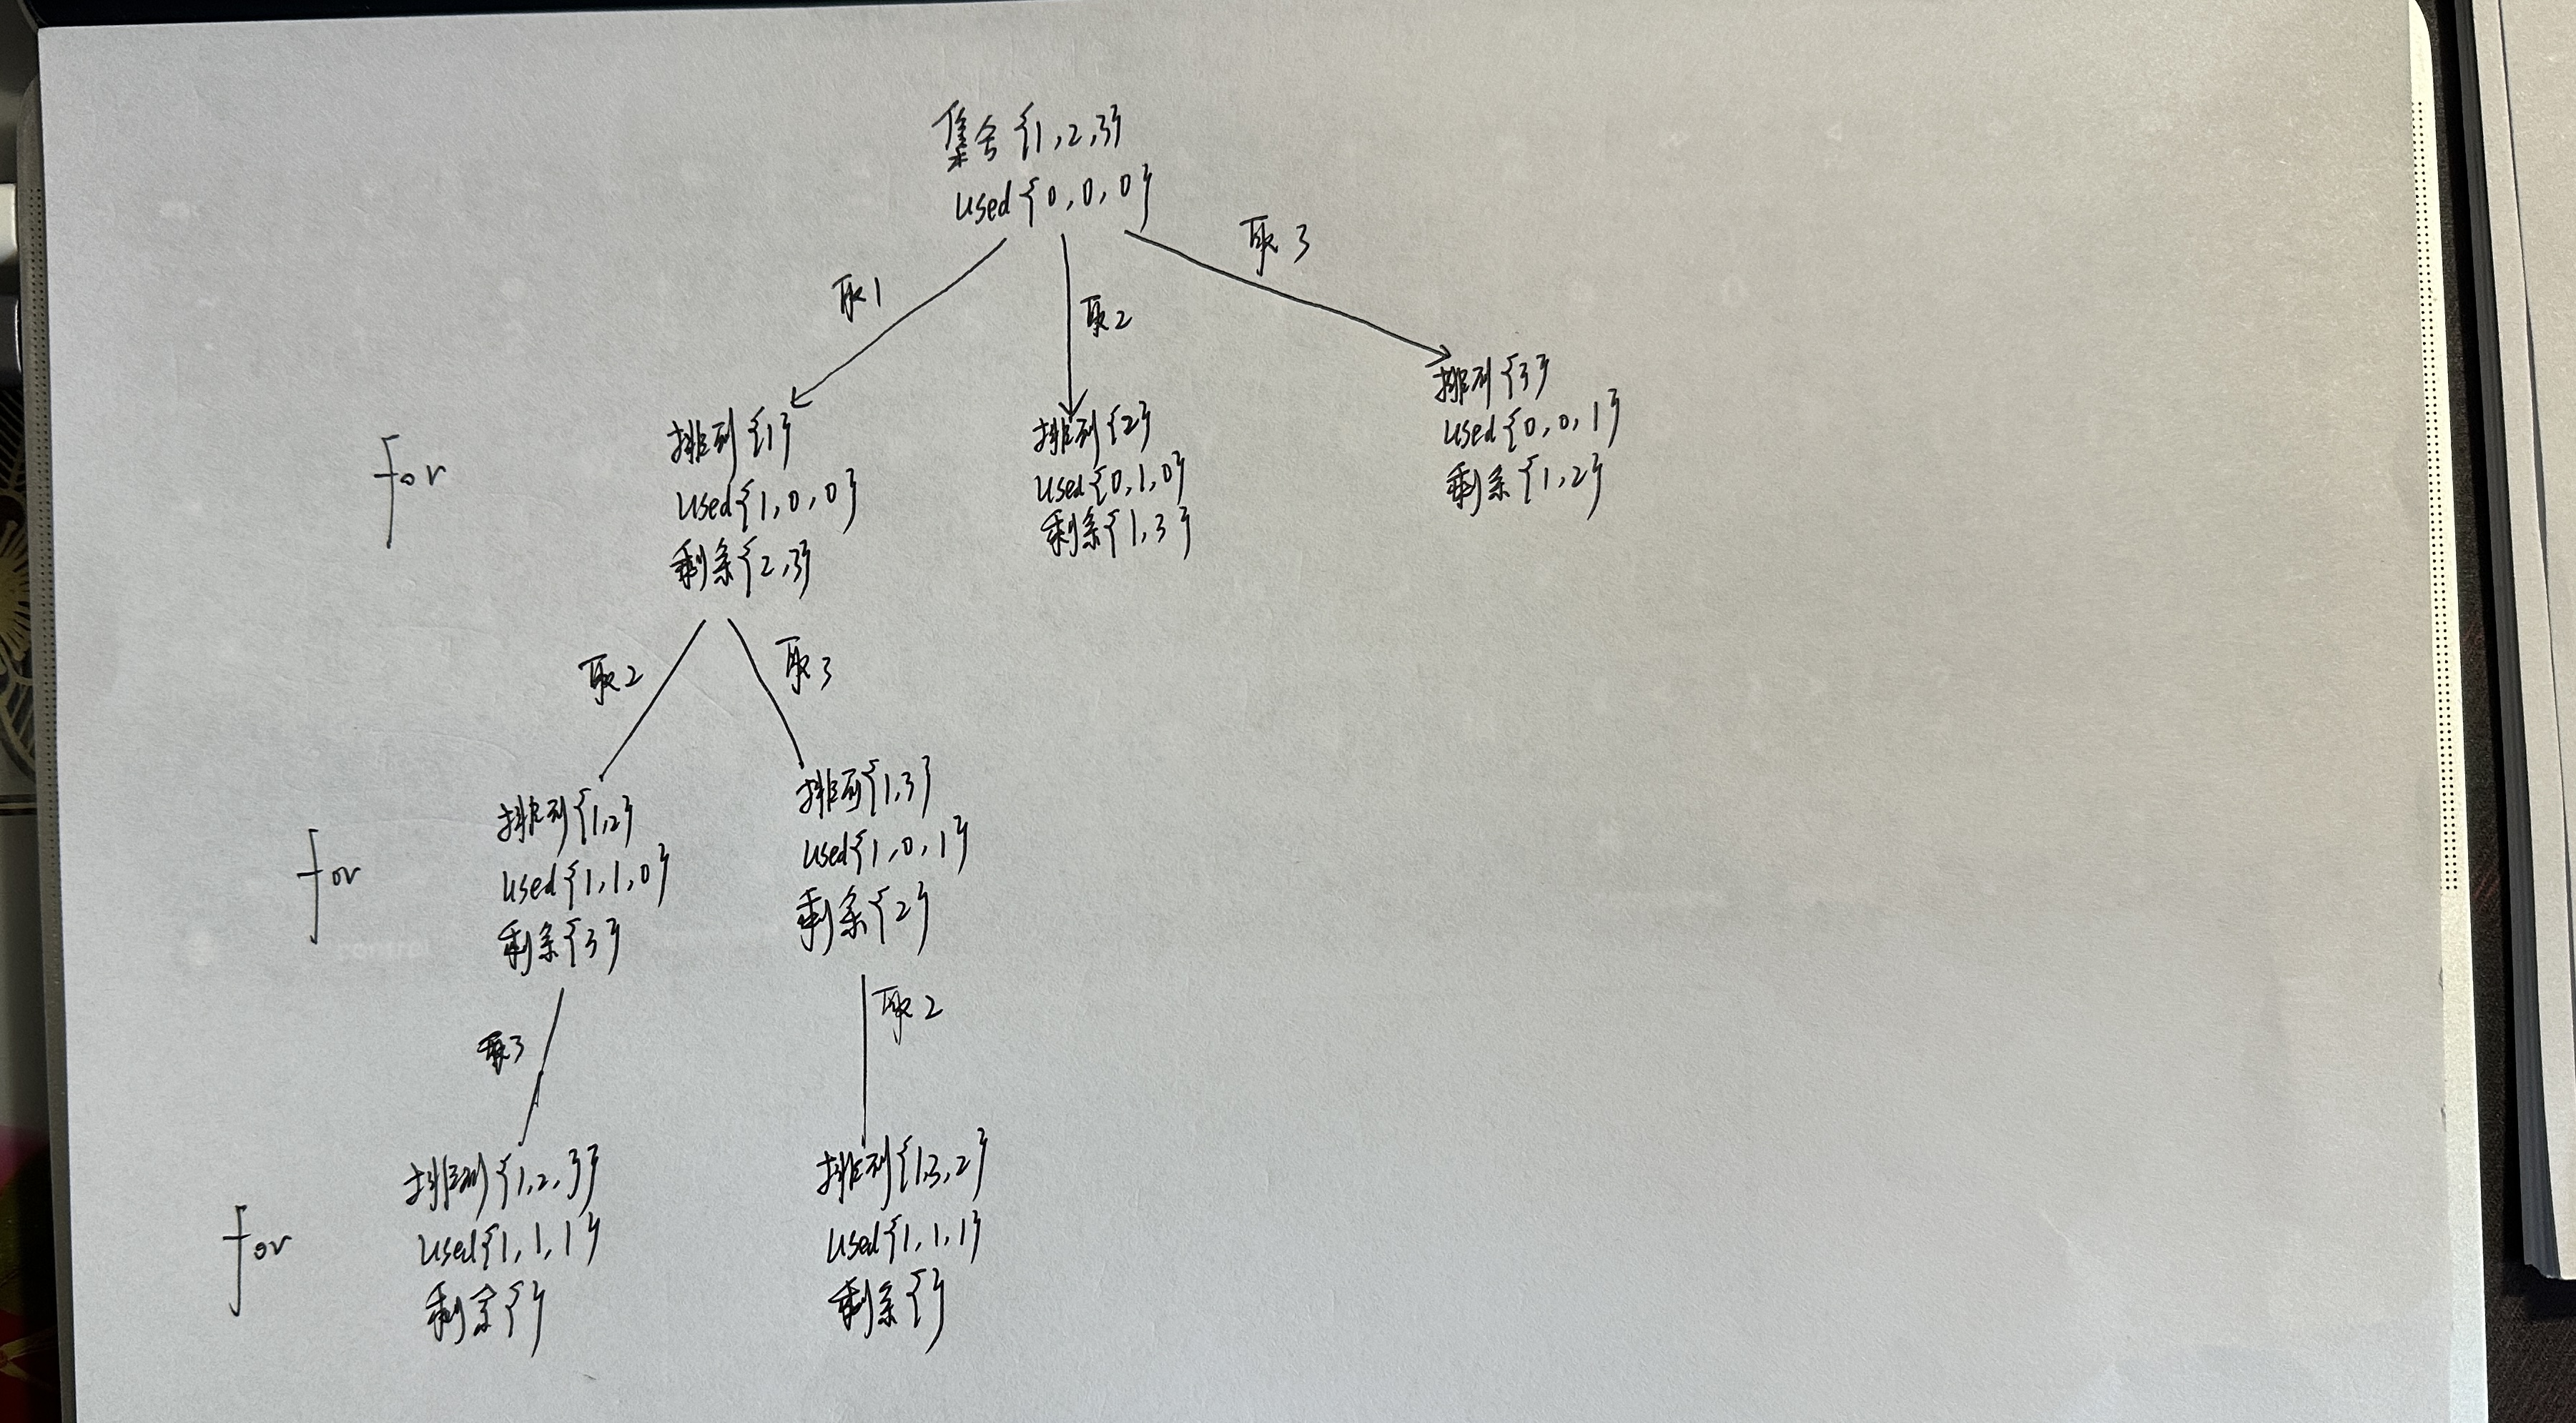 集合{1,2,3}
used{0,0,0}
取1
取2
取3
for
排列{1}
used{1,0,0}
剩余{2,3}
排列{2}
used{0,1,0}
剩余{1,3}
排列{3}
used{0,0,1}
剩余{1,2}
取2
取3
for
排列{1,2}
used{1,1,0}
剩余{3}
排列{1,3}
used{1,0,1}
剩余{2}
取3
取2
for
排列{1,2,3}
used{1,1,1}
剩余{}
排列{1,3,2}
used{1,1,1}
剩余{}